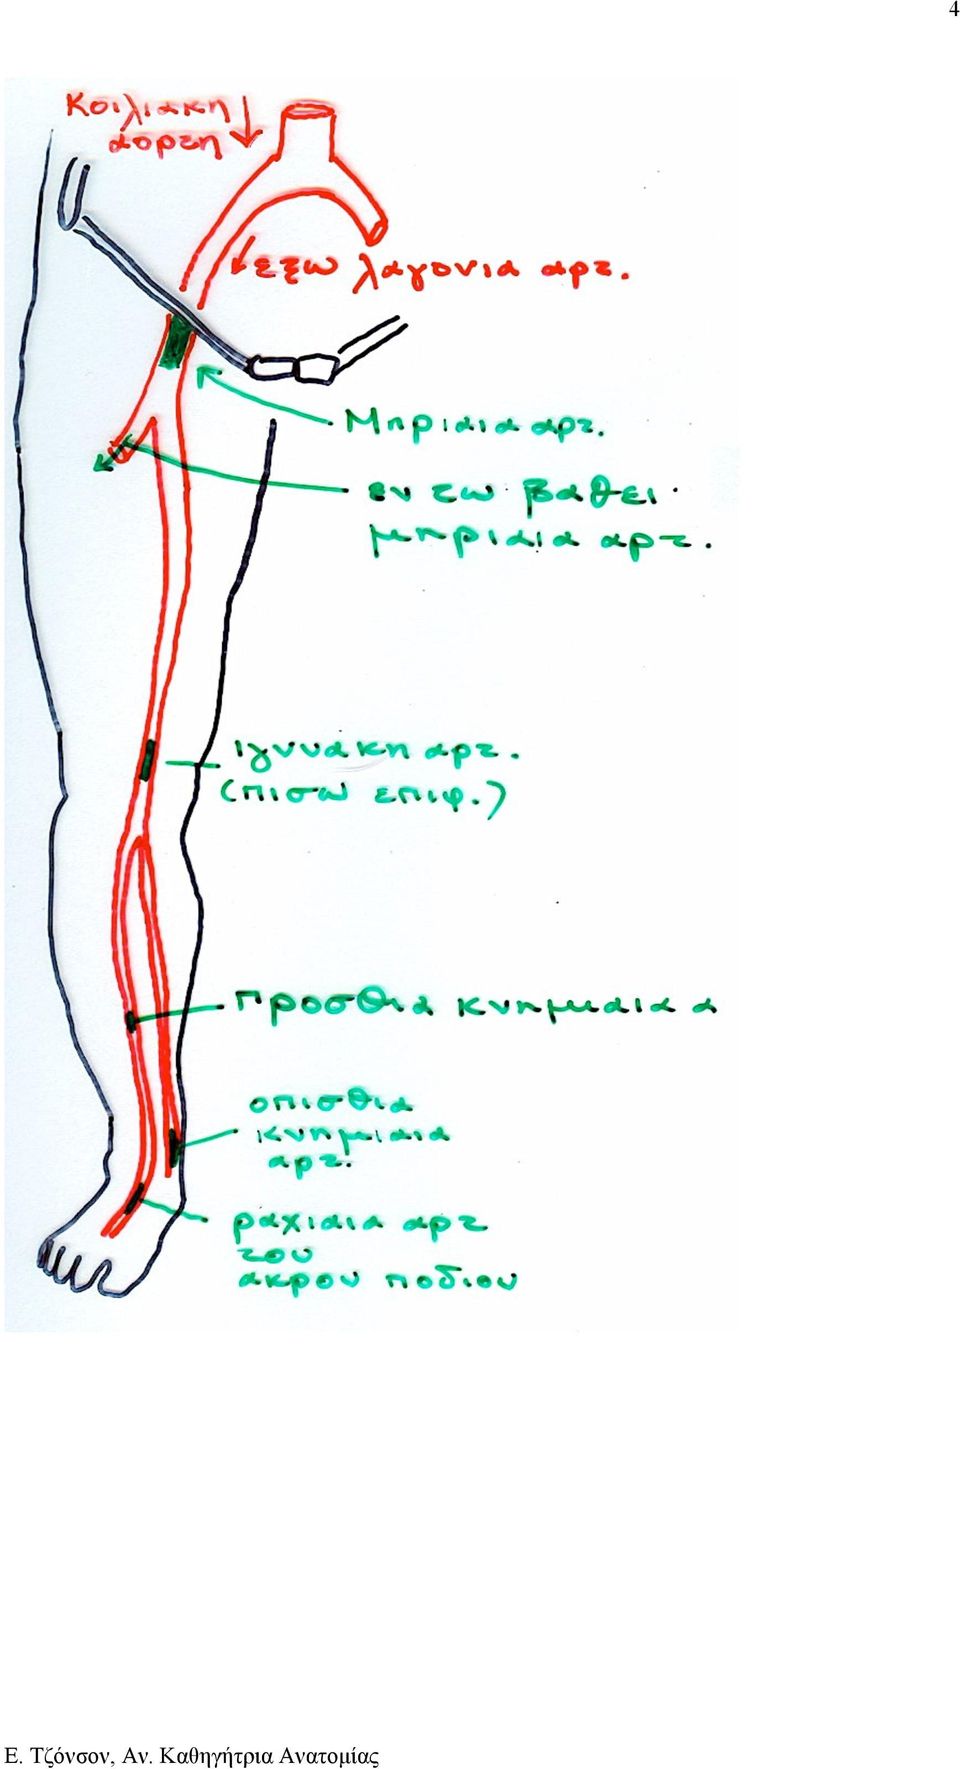 4
Κοιλιακη
αορτη
εξω λαγονια αρτ.
Μηριαια αρτ.
εν τω βαθει
μηριαια αρτ.
ιγνυακη αρτ.
(πισω επιφ.)
Προσθια κνημιαια α
οπισθια
κνημιαια
αρτ.
ραχιαια αρτ
του
ακρου ποδιου
Ε. Τζόνσον, Αν. Καθηγήτρια Ανατομίας